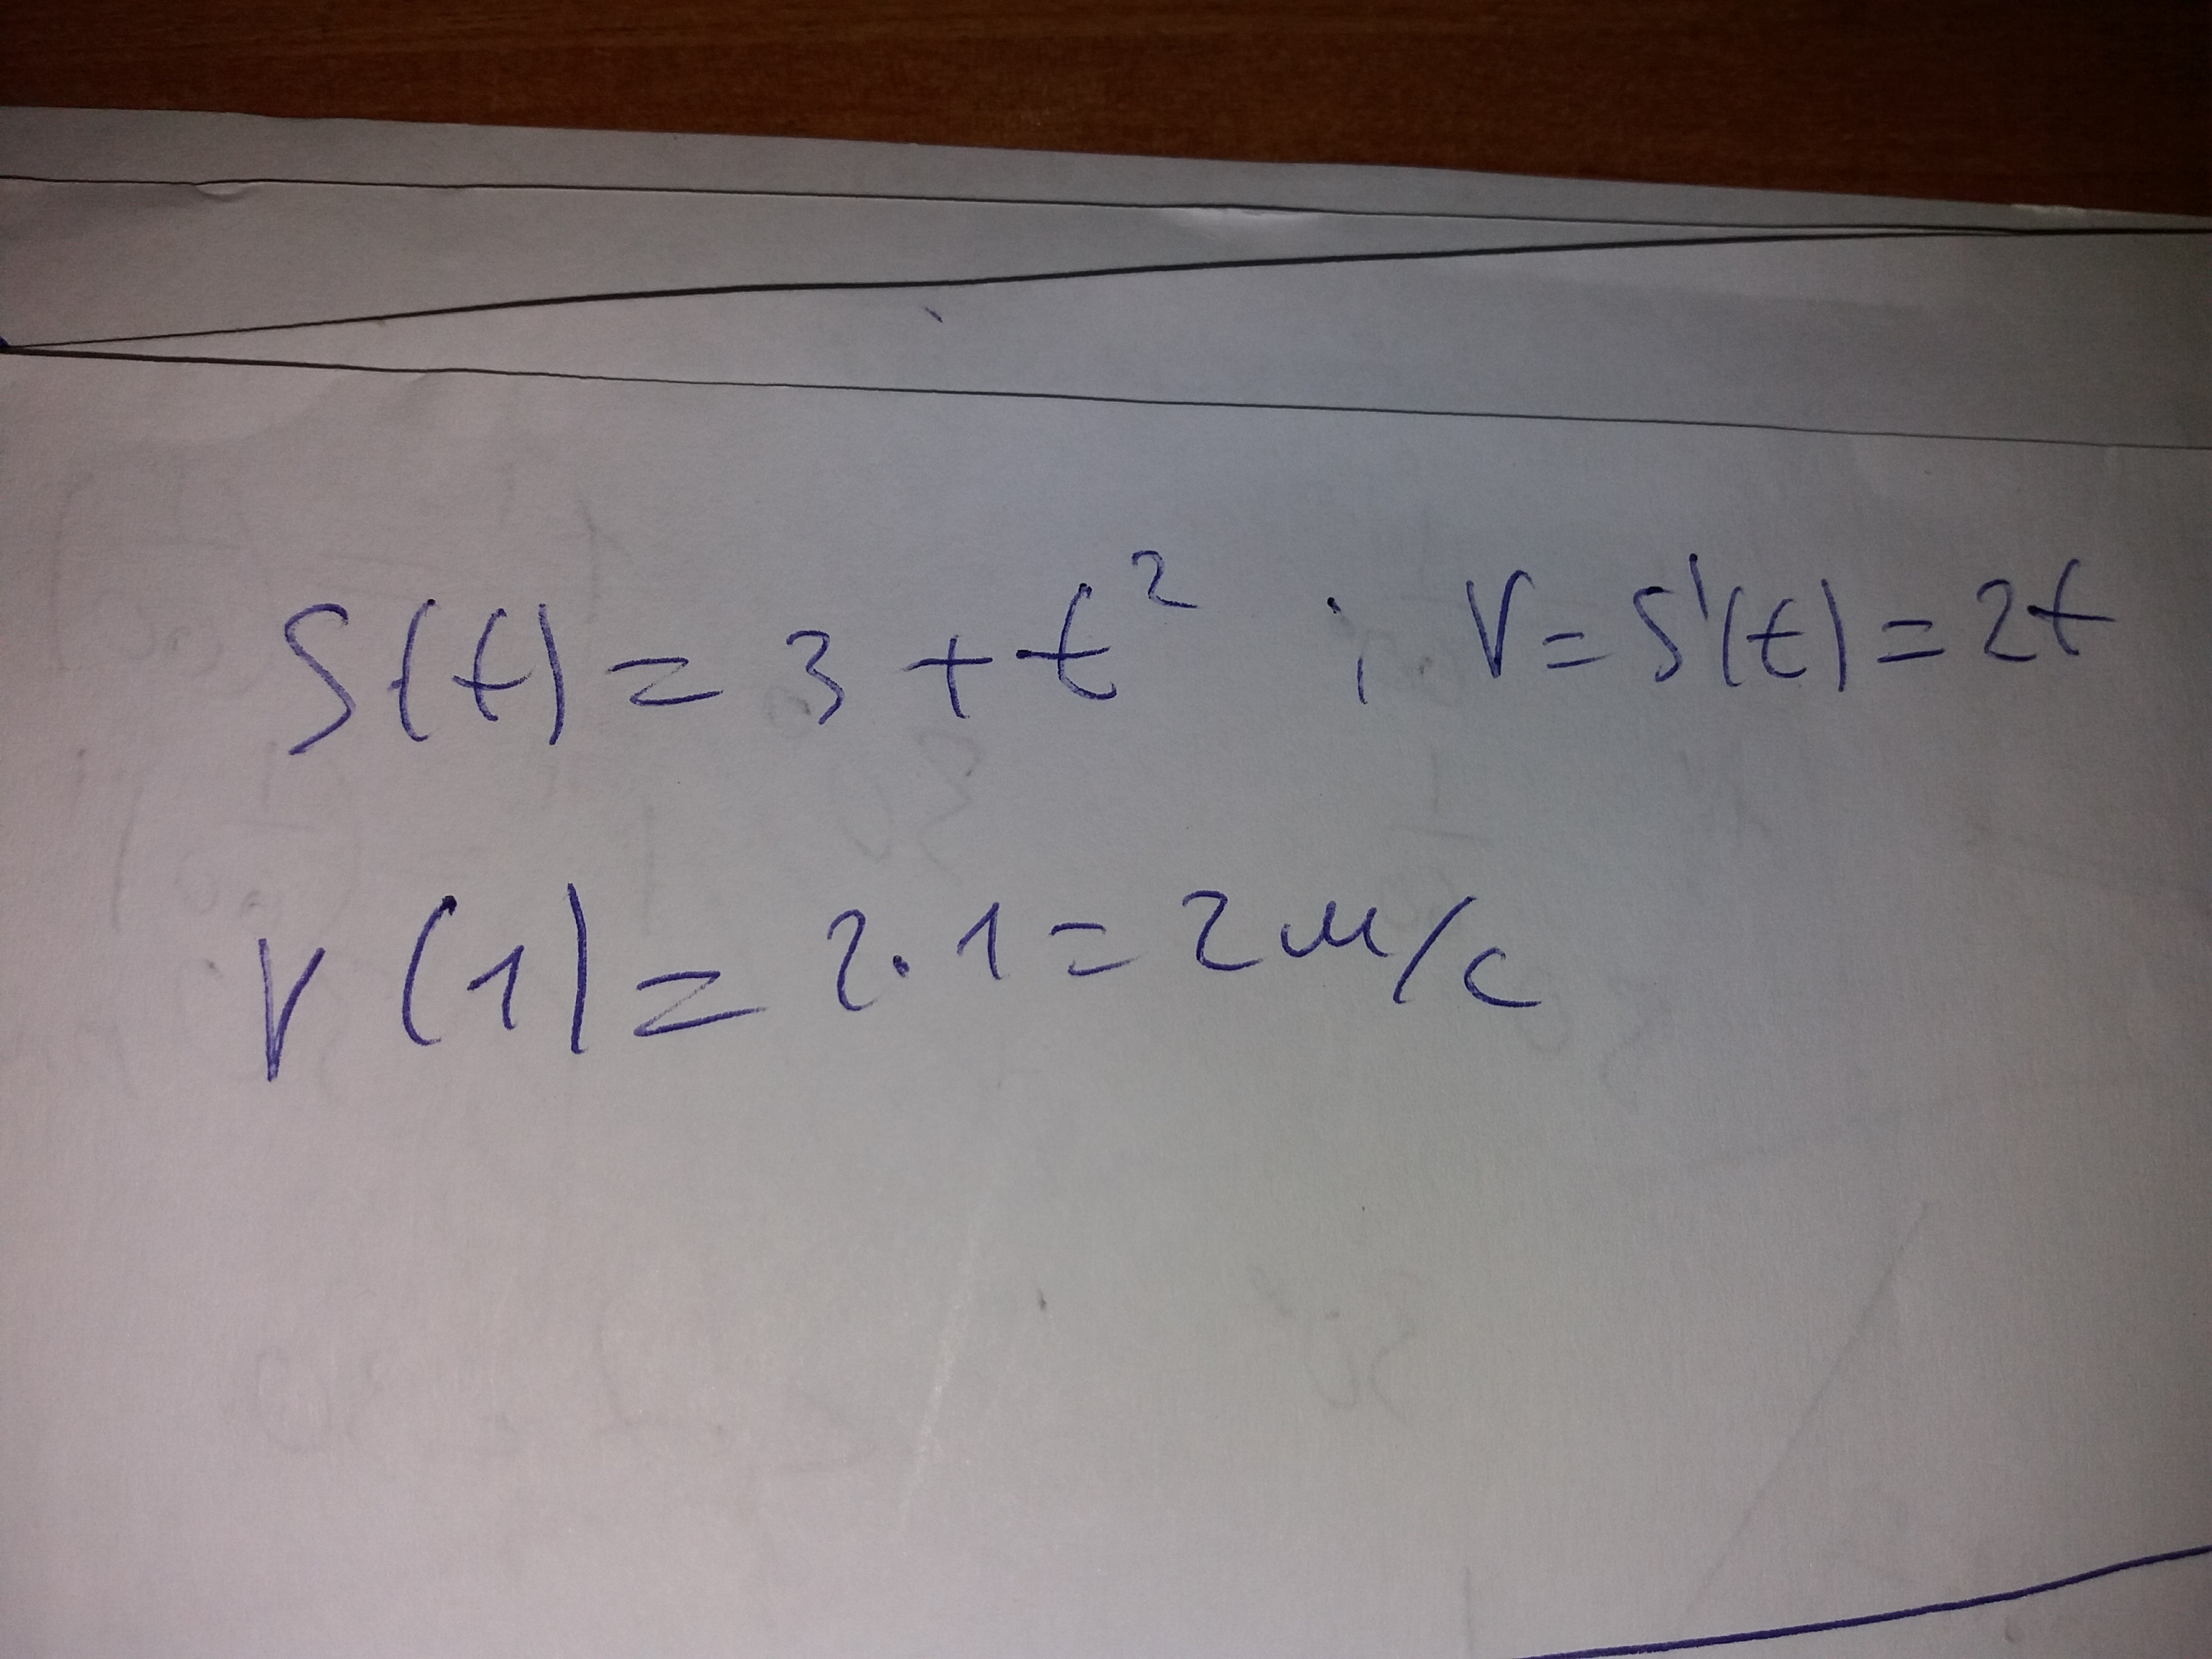 S(t) = 3 + t² ; V = S'(t) = 2t
V(1) = 2 · 1 = 2 м/с